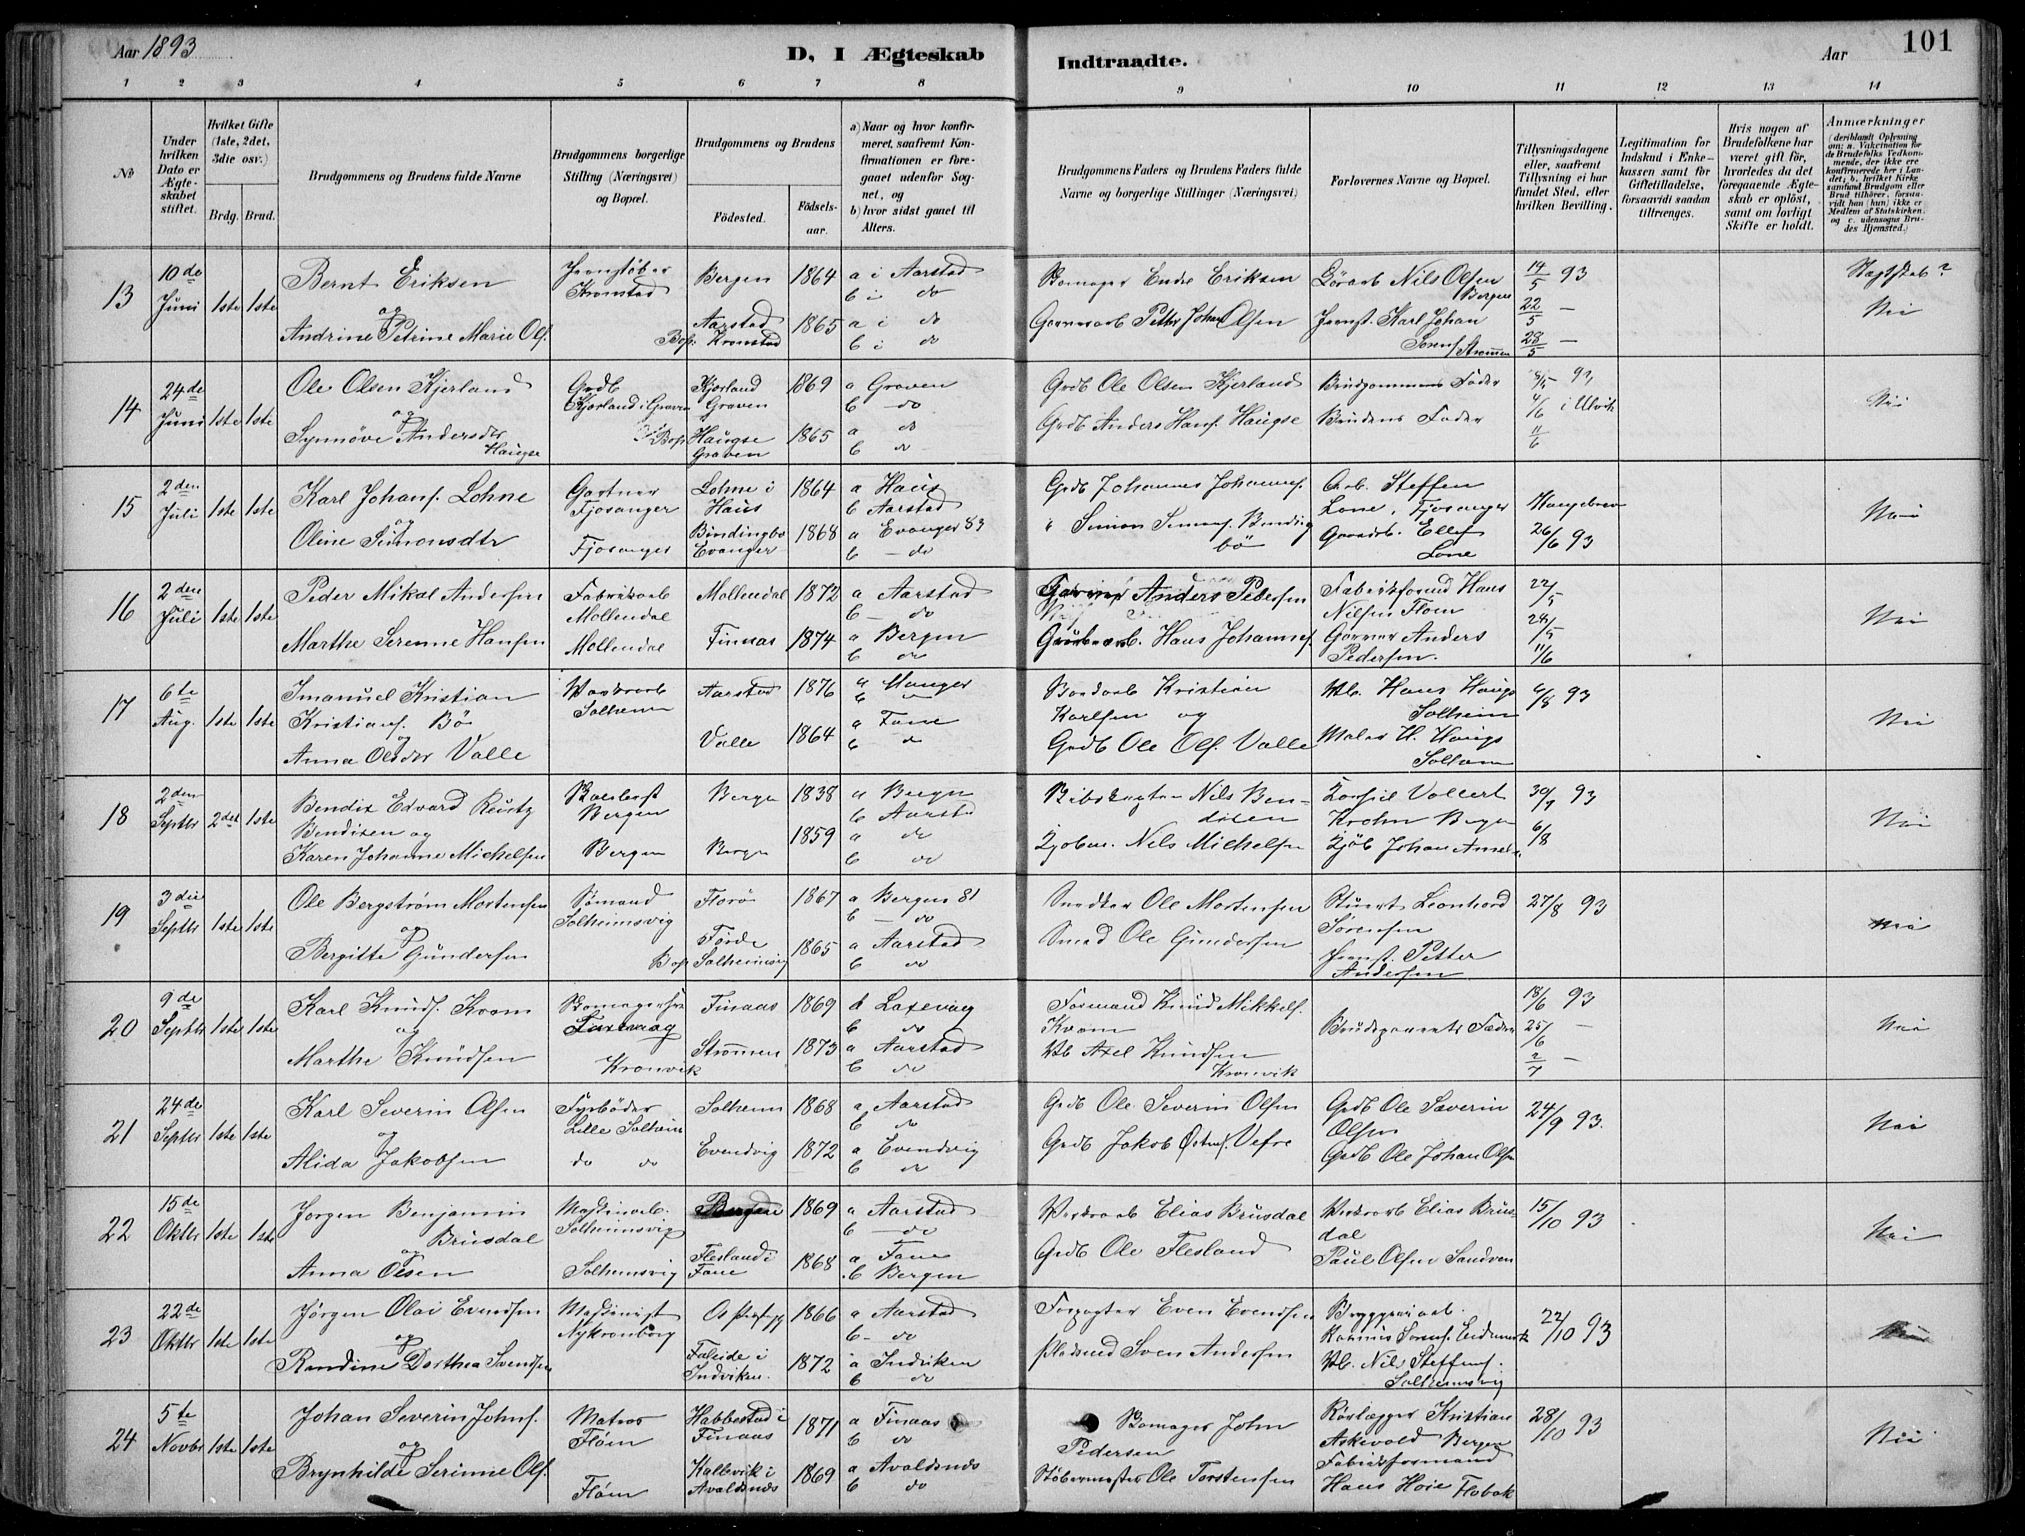 Aar 1893
D, I Ægteskab
Indtraadte.
Aar
101
1 2 3 4 5 6 7 8 9 10 11 12 13 14
No
Under hvilken Dato er Ægteskabet stiftet.
Hvilket Gifte (1ste, 2det, 3die osv.)
Brdg. Brud.
Brudgommens og Brudens fulde Navne
Brudgommens borgerlige Stilling (Næringsvei) og Bopæl.
Brudgommens og Brudens
Fødested.
Fødselsaar.
a) Naar og hvor konfirmeret, saafremt Konfirmationen er foregaaet udenfor Sognet, og
b) hvor sidst gaaet til Alters.
Brudgommens Faders og Brudens Faders fulde Navne og borgerlige Stillinger (Næringsvei)
Forlovernes Navne og Bopæl.
Tillysningsdagene eller, saafremt Tillysning ei har fundet Sted, efter hvilken Bevilling.
Legitimation for Indskud i Enkekassen samt for Giftetilladelse, forsaavidt saadan tiltrænges.
Hvis nogen af Brudefolkene har været gift før, hvorledes da det foregaaende Ægteskab er opløst, samt om lovligt Skifte er holdt.
Anmærkninger
(deriblandt Oplysning om: a. Vakcination for de Brudefolks Vedkommende, der ikke ere konfirmerede her i Landet; b. hvilket Kirkesamfund Brudgom eller Brud tilhører, forsaavidt han (hun) ikke er Medlem af Statskirken, og c. udensogns Brudes Hjemsted.)
13 10de Juni 1ste 1ste Bernt Eriksen Kronstad Bergen 1864 a i Aarstad b i do
Eriksen Nils Olsen Bergen 14/5 93
og Andrine Petrine Marie Ols. Bop. Aarstad Kronstad 1865 a i do b i do
Petter Johan Olsen Karl Johan 22/5 — 28/5 —
Nei
14 24de Juni 1ste 1ste Ole Olsen Kjerland Grdb Kjærland i Graven Kjærland Graven 1869 a Graven b do
Grdb Ole Olsen Kjerland Brudgommens Fader
og Synnøve Andersdtr Haugse Bop Haugse Graven 1865 a do b do
Grdb Anders Hans. Haugse Brudens Fader 4/6 i Ulvik 11/6
Nei
15 2den Juli 1ste 1ste Karl Johans. Lohne Gartner Fjosanger Lohne i Haus 1864 a Haus b Aarstad
Grdb Johannes Johannes. Arb. Steffen Lone, Fjosanger Kongebrev
og Oline Simonsdtr Fjosanger Bindingbø Evanger 1868 a Evanger 83 b — do
" Simon Simons. Bindingbø Ellef Lone 26/6 93
Nei
16 2den Juli 1ste 1ste Peder Mikal Andersen Fabrikarb Mollendal Mollendal 1872 a Aarstad b — do
Garver Anders Pedersen Fabrikformd Hans Nilsen Flom 22/5
Marthe Serenne Hansen Mollendal Finaas 1874 a Bergen b do
Hans Johannes. Garver Anders Pedersen. 11/6
Nei
17 6te Aug. 1ste 1ste Imanuel Kristian Kristians. Bø Solheim Aarstad 1876 a Manger b "
Kristian Karlsen og Hans Haugs Solheim 6/8 93
og Anna Olsdtr Valle Valle 1864 a Fane b do
Grdb Ole Ols. Valle Maler H. Haugs
Nei
18 2den Septbr 2det 1ste Bendix Edvard Reusty Bendixen og Bergen Bergen 1838 a Bergen b Aarstad
Nils Bendixen Vollert Krohn Bergen 30/7 93
Karen Johanne Michelsen Bergen Bergen 1859 a do b do
Nils Michelsen Kjøb Johan 6/8
Nei
19 3die Septbr 1ste 1ste Ole Bergstrøm Mortensen Sømand Solheimsvig Florø 1867 a Bergen 81 b — do
Ole Mortensen Stuert Leonhard Sørensen 27/8 93
og Bergitte Gundersen Bop Førde Solheimsvig 1865 a Aarstad b do
Smed Ole Gundersen Petter Andersen
Nei
20 9de Septbr 1ste 1ste Karl Knuds. Kvam Laxevaag Finaas 1869 a Laxevaag b do
Formand Knud Mikkels. Kvam 18/6 93
og Marthe Knudsen Kronvik Strømmen 1873 a Aarstad b do
Axel Knudsen Kronvik Fædre 25/6 — 2/7 —
Nei
21 24de Septbr 1ste 1ste Karl Severin Olsen Fyrbøder Lille Solheim Solheim 1868 a Aarstad b do
Grdb Ole Severin Olsen Grdb Ole Severin Olsen 24/9 93.
og Alida Jakobsen do do Evendvig 1872 a Evendvig b do
Grdb Jakob Østens. Vefre Grdb Ole Johan Olsen
Nei
22 15de Oktbr 1ste 1ste Jørgen Benjamin Brusdal Solheimsvig Bergen 1869 a Aarstad b — do
Elias Brusdal Elias Brusdal 15/10 93
og Anna Olsen Solheimsvig Flesland i Fane 1868 a Fane b Bergen
Grdb Ole Flesland Paul Olsen Sandven
Nei
23 22de Oktbr 1ste 1ste Jørgen Olai Evendsen Maskinist Nykronborg Os 1866 a Aarstad b — do
Forpagter Even Evendsen 22/10 93
og Randine Dorthea Svendsen Faleide i Indviken. 1872 a Indviken b do
Pladsmd Sven Andersen Nils Steffens. Solheimsvig
24 5te Novbr 1ste 1ste Johan Severin Johns. Matros Fløen Habbestad i Finaas 1871 a Finaas b do
John Pedersen Rørlægger Kristian Askevold Bergen 28/10 93
og Brynhilde Serinne Ols. Fløen Kallevik i Avaldsnes 1869 a Avaldsnes b do
Støbermester Ole Torstensen Fabrikformand Hans Hoie
Nei